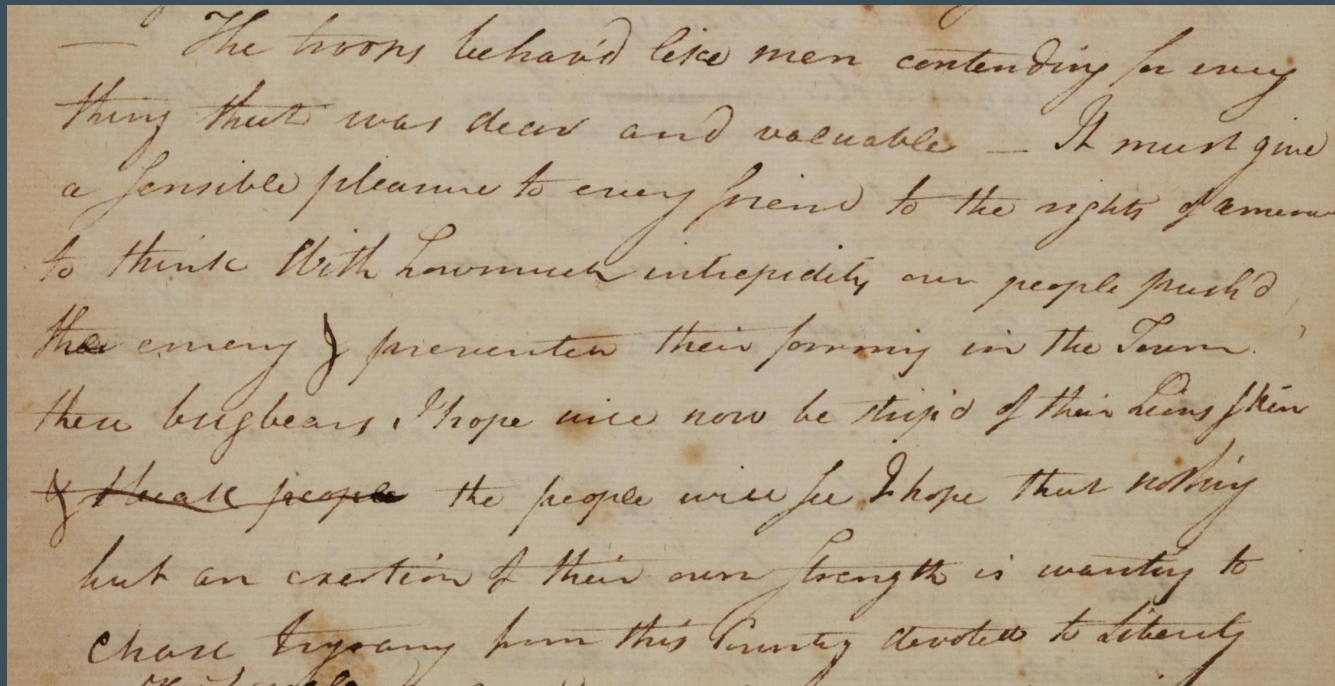 — The troops behav'd like men contending for every
thing that was dear and valuable — It must give
a sensible pleasure to every friend to the rights of America
to think With howmuch intrepidity our people push'd
the enemy & prevented their forming in the Town.
these bugbears, I hope will now be strip'd of their Lions skin
& the people will see I hope that nothing
but an exertion of their own strength is wanting to
chase tyrany from this Country devoted to Liberty